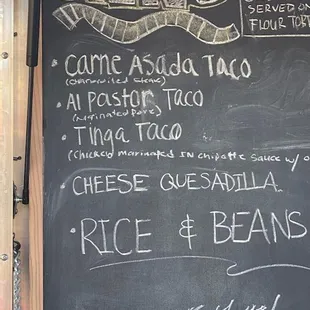 SERVED ON
FLOUR TOR
• Carne Asada Taco
(charbroiled steak)
• Al Pastor Taco
(Marinated Pork)
• Tinga Taco
(Chicken marinated IN chipotle sauce w/
• CHEESE QUESADILLA
• RICE & BEANS